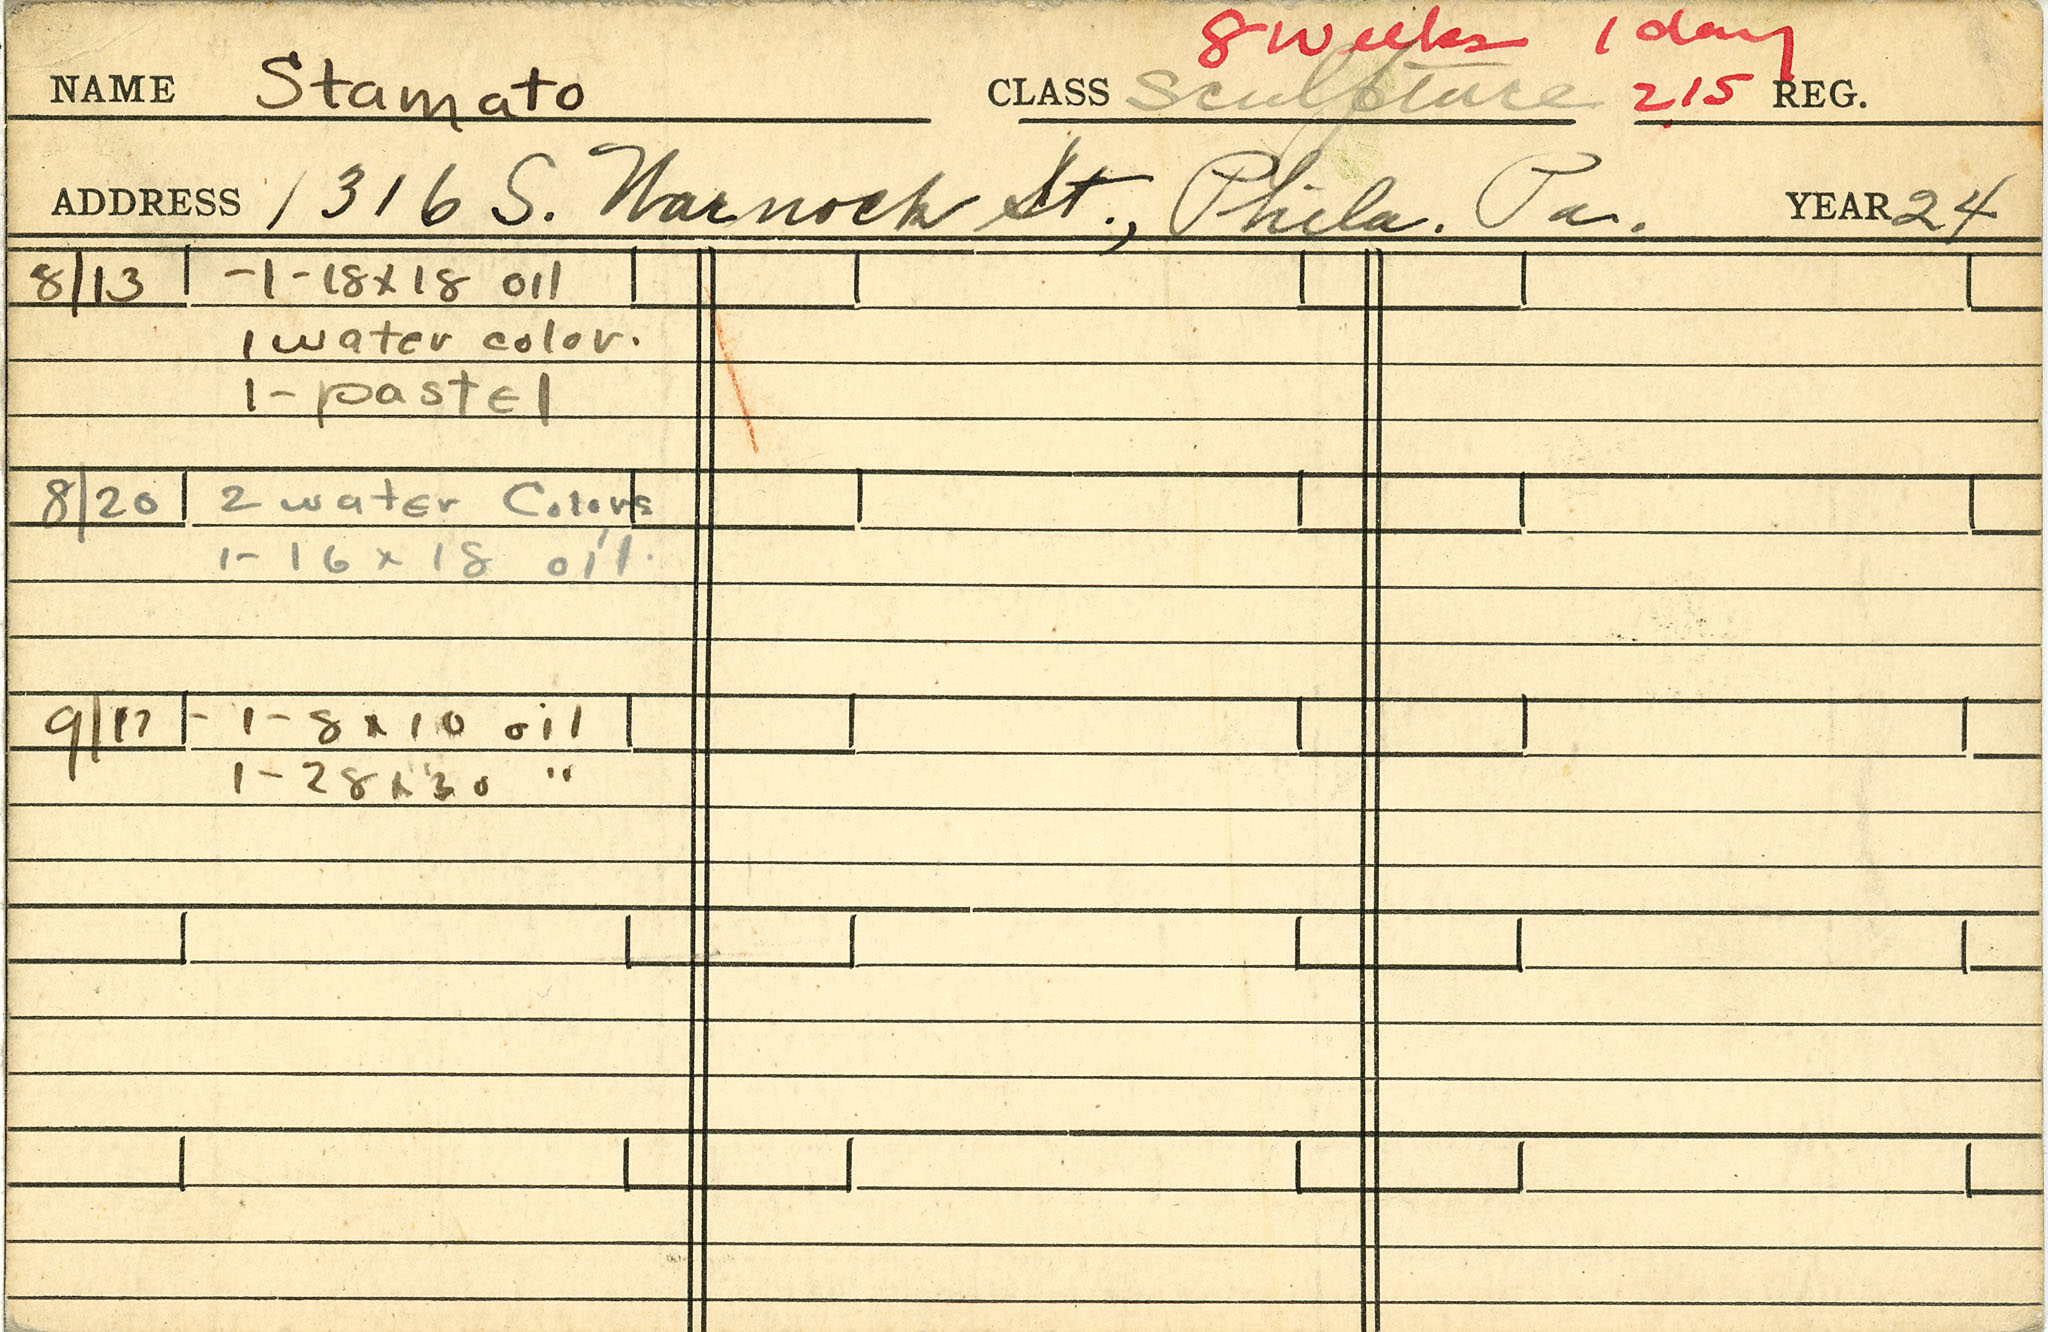 8 weeks 1 day
NAME Stamato CLASS Sculpture 215 REG.
ADDRESS 1316 S. Warnock St., Phila. Pa. YEAR 24
8/13 -1-18x18 oil
1 water color.
1-pastel
8/20 2 water Colors
1-16x18 oil.
9/17 - 1-8x10 oil
1-28x30 "